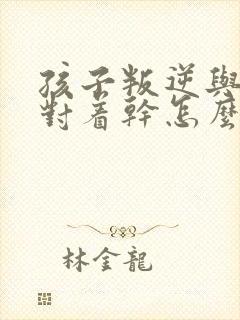 孩子叛逆與
對着幹怎麼
林金龍